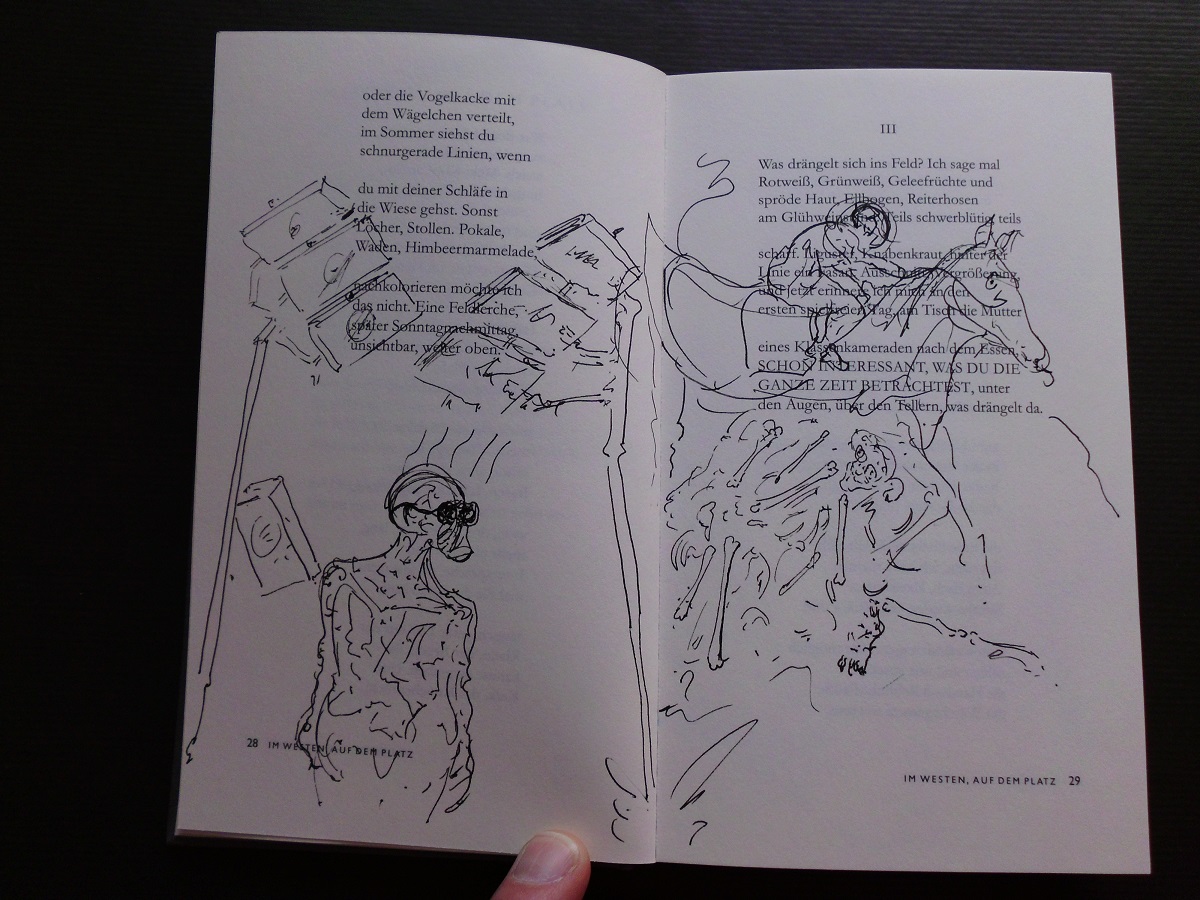 oder die Vogelkacke mit
dem Wägelchen verteilt,
im Sommer siehst du
schnurgerade Linien, wenn
du mit deiner Schläfe in
die Wiese gehst. Sonst
Löcher, Stollen. Pokale,
Waden, Himbeermarmelade
nachkolorieren möchte ich
das nicht. Eine Feldlerche,
später Sonntagnachmittag,
unsichtbar, weiter oben.
28 IM WESTEN, AUF DEM PLATZ
III
Was drängelt sich ins Feld? Ich sage mal
Rotweiß, Grünweiß, Geleefrüchte und
spröde Haut, Ellbogen, Reiterhosen
am Teils schwerblütig, teils
scharf. Liguster, Knabenkraut, hinter der
Linie ein Fasan. Ausschnittvergrößerung,
und jetzt erinnere ich mich an den
ersten spielfreien Tag, am Tisch die Mutter
eines Klassenkameraden nach dem Essen,
SCHON INTERESSANT, WAS DU DIE
GANZE ZEIT BETRACHTEST, unter
den Augen, über den Tellern, was drängelt da.
IM WESTEN, AUF DEM PLATZ 29